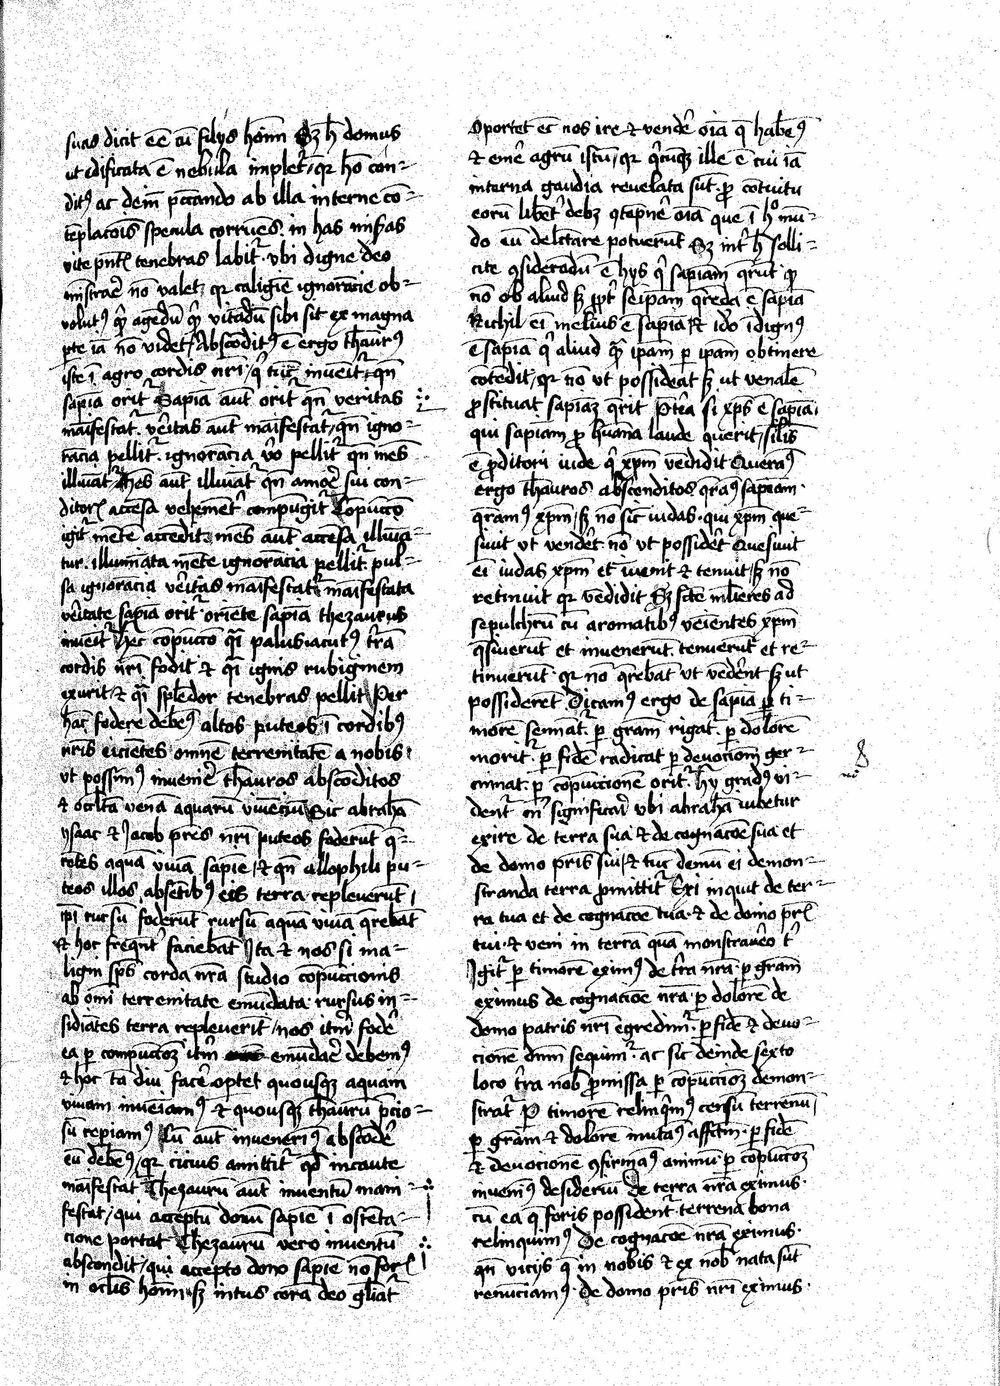 suas dicit eē cū filijs hoīm Sz h̄ domus
ut edificata ē nebula implet᷑ qr hō con-
dit⁹ ac deīn pctando ab illa interne cō-
tēplacōis specula corruēs in has infimas
vite pn̄tꝭ tenebras labit᷑ vbi digne deo
mistrar̄e nō valet qr caligīe ignorācie ob-
volut⁹ qͥ agēdū qͥ vitādū sibi sit ex magna
pte iā nō videt Abscōdit⁹ ē ergo thaur⁹
iste ī agro cordis nr̄i qͥ tūc inveīt᷑ qn̄
sapīa orit᷑ Sapīa aut̄ orit᷑ qn̄ veritas
maīfestat᷑ vēitas aut̄ maīfestat᷑ qn̄ igno-
rācia pellit᷑ ignorācia vō pellit᷑ qn̄ mēs
illuīat᷑ Mēs aut̄ illuīat᷑ qn̄ amor̄e sui con-
ditorꝭ accēsa vehemēt᷑ compūgit᷑ Copūcco
igit᷑ mētē accēdit mēs aut̄ accēsa illuīa-
tur illumīata mēte ignorācia pellit᷑ pul-
sa ignorācia vēitas maīfestat᷑ maīfestata
vēitate sapīa orit᷑ oriēte sapīa thezaurus
inveīt᷑ Hec cōpūcco qͣī palusacut⁹ tr̄ā
cordis nr̄i fodit & qͣī ignis rubigīnem
exurit & qͣī splēdor tenebras pellit Per
hāc fodere debem⁹ altos puteos ī cordib⁹
nr̄is eiciētes omnē terrenitatē a nobis
ut possim⁹ invenīe thauros abscōditos
& ocl̄tā venā aquarū viventiū Sic abrahā
ysaac & Jacob pr̄es nr̄i puteos foderūt q̄-
rētes aquā vivā sapīe & qn̄ allophili pu-
teos illos absētib⁹ eis terra repleverūt
ip̄i rursū foderūt rursū aquā vivā q̄rebāt
& hoc freqn̄t᷑ faciebāt Ita & nos si ma-
ligni sp̄s corda nr̄a studio cōpuccionis
ab om̄i terrenitate emūdata rursus in-
sidiātes terra repleverīt nos itm̄ foder̄e
ea p compūccōz itm̄ emūdar̄e debem⁹
& hoc tā diu facer̄e optet quousqz aquam
vivam inveīam⁹ & quousqz thaurū p̄cio-
sū repiam⁹ Cū aut̄ invenerim⁹ abscōder̄e
eū debem⁹ qr cicius amittit᷑ qd̄ incaute
maīfestat᷑ Thezaurū aut̄ inventū mani-
festat qui acceptū donū sapīe ī ostēta-
cione portat Thezaurū vero inventū
abscondit qui accepto dono sapīe no forꝭ
in oclīs hoīm sz intus corā deo gl̄iat᷑
Oportet ec̄ nos ire & vender̄e oīa q̄ habem⁹
& emer̄e agrū istū qr qͥcūqz ille ē cui iā
interna gaudia revelata sūt pro cōtuitu
eorū libēt᷑ debz qtēpner̄e oīa que ī hͦ mū-
do eū delectare potuerūt Sz int᷑ h̄ solli-
cite qsiderādū ē hijs qͥ sapīam qr̄ūt qp
nō ob aliud sz ppt᷑ seip̄am qr̄ēda ē sapīa
Nichil ei melius ē sapīa & ido indign⁹
ē sapīa qͥ aliud qͣ ip̄am p ip̄am obtinere
cōtēdit qr nō ut possideat sz ut venalē
pstituat sapīaz qr̄it Ptīa si xps ē sapīa
qui sapīam pro hūana laude querit sil̄is
ē pditori iude qͥ xpm̄ vēdidit Queram⁹
ergo thauros absconditos qram⁹ sapīam
qram⁹ xpm̄ sz nō sic iudas qui xpm̄ que-
sivit ut vender̄et nō ut possider̄et Quesivit
ei iudas xpm̄ et īvenit & tenuit sz nō
retinuit qr vēdidit Sz scē mlieres ad
sepulchrū cū aromatib⁹ veientes xpm̄
qsiverūt et invenerūt tenuerūt et re-
tinuerūt qr nō qrebāt ut vēder̄ent sz ut
possiderent Dicam⁹ ergo de sapīa p ti-
morē semīat᷑ p gram̄ rigat᷑ p dolorē
morit᷑ p fidē radicat p devociom̄ ger-
mīat p cōpuccionē orit᷑ hij grad⁹ vi-
dent᷑ m̄ significar̄i ubi abrahā iubetur
exire de terra sua & de cognacōe sua et
de domo pr̄is sui & tūc demū ei demon-
stranda terra pmittit᷑ Exi inquit de ter-
ra tua et de cognacōe tua & de domo pr̄ꝭ
tui & veni in terrā quā monstravēo tͥ
Igit᷑ p timorē exim⁹ de tr̄a nr̄a p gram̄
eximus de cognacioe nr̄a p dolorē de
domo patris nr̄i egredim᷑ p fidē & devo-
cionē dnm̄ sequim᷑ ac sic deinde sexto
loco tr̄a nob̄ pmissa p cōpuccioz demon-
strat᷑ P timorē relinqͥm⁹ censū terrenū
p gram̄ & dolorē mutam⁹ affctm̄ p fidē
& devocionē qfirmam⁹ animū p cōpuccoz
invenim⁹ desideriū De terra nr̄a eximus
cū ea q̄ foris possident᷑ terrena bona
relinquim⁹ De cognacōe nr̄a eximus
qn̄ vicijs q̄ in nobis & ex nob̄ nata sūt
renūciam⁹ De domo pr̄is nr̄i eximus